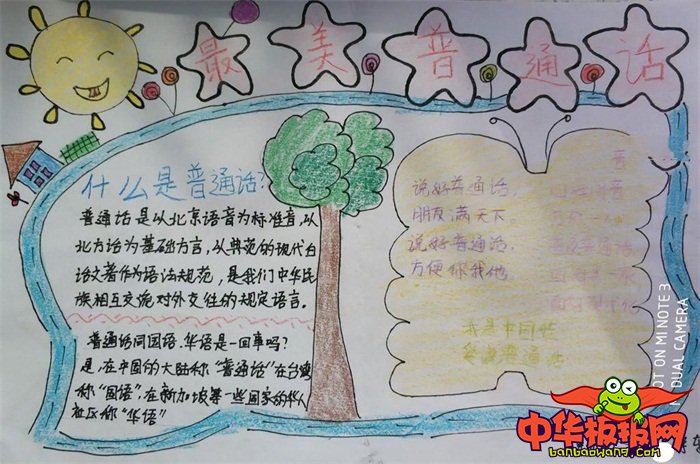 最美普通话
什么是普通话?
普通话是以北京语音为标准音,以
北方话为基础方言,以典范的现代白
话文著作为语法规范,是我们中华民
族相互交流对外交往的规定语言。
普通话同国语.华语是一回事吗?
是,在中国的大陆称"普通话"在台湾
称"国语",在新加坡等一些国家的华人
社区称"华语"
说好普通话,
朋友满天下。
说好普通话,
方便你我他。
我是中国
爱说普通话
OT ON MI NOTE 3
DUAL CAMERA
中华板报网
banbaowang.com